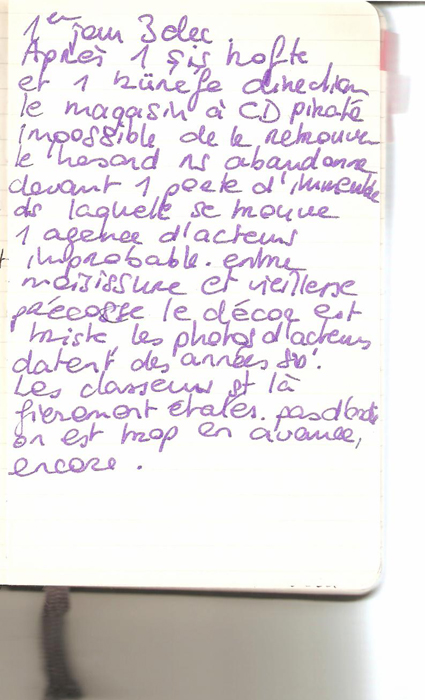 1er jour 3 dec
Après 1 şiş kofte
et 1 künefe direction
le magasin à CD piraté
impossible de le retrouver
le hasard ns abandonne
devant 1 porte d'immeuble
ds laquelle se trouve
1 agence d'acteurs
improbable. entre
moisissure et vieillesse
précosse le décor est
triste, les photos d'acteurs
datent des années 80'.
Les classeurs st là
fierement étalés. pas d'ordi
on est trop en avance,
encore.